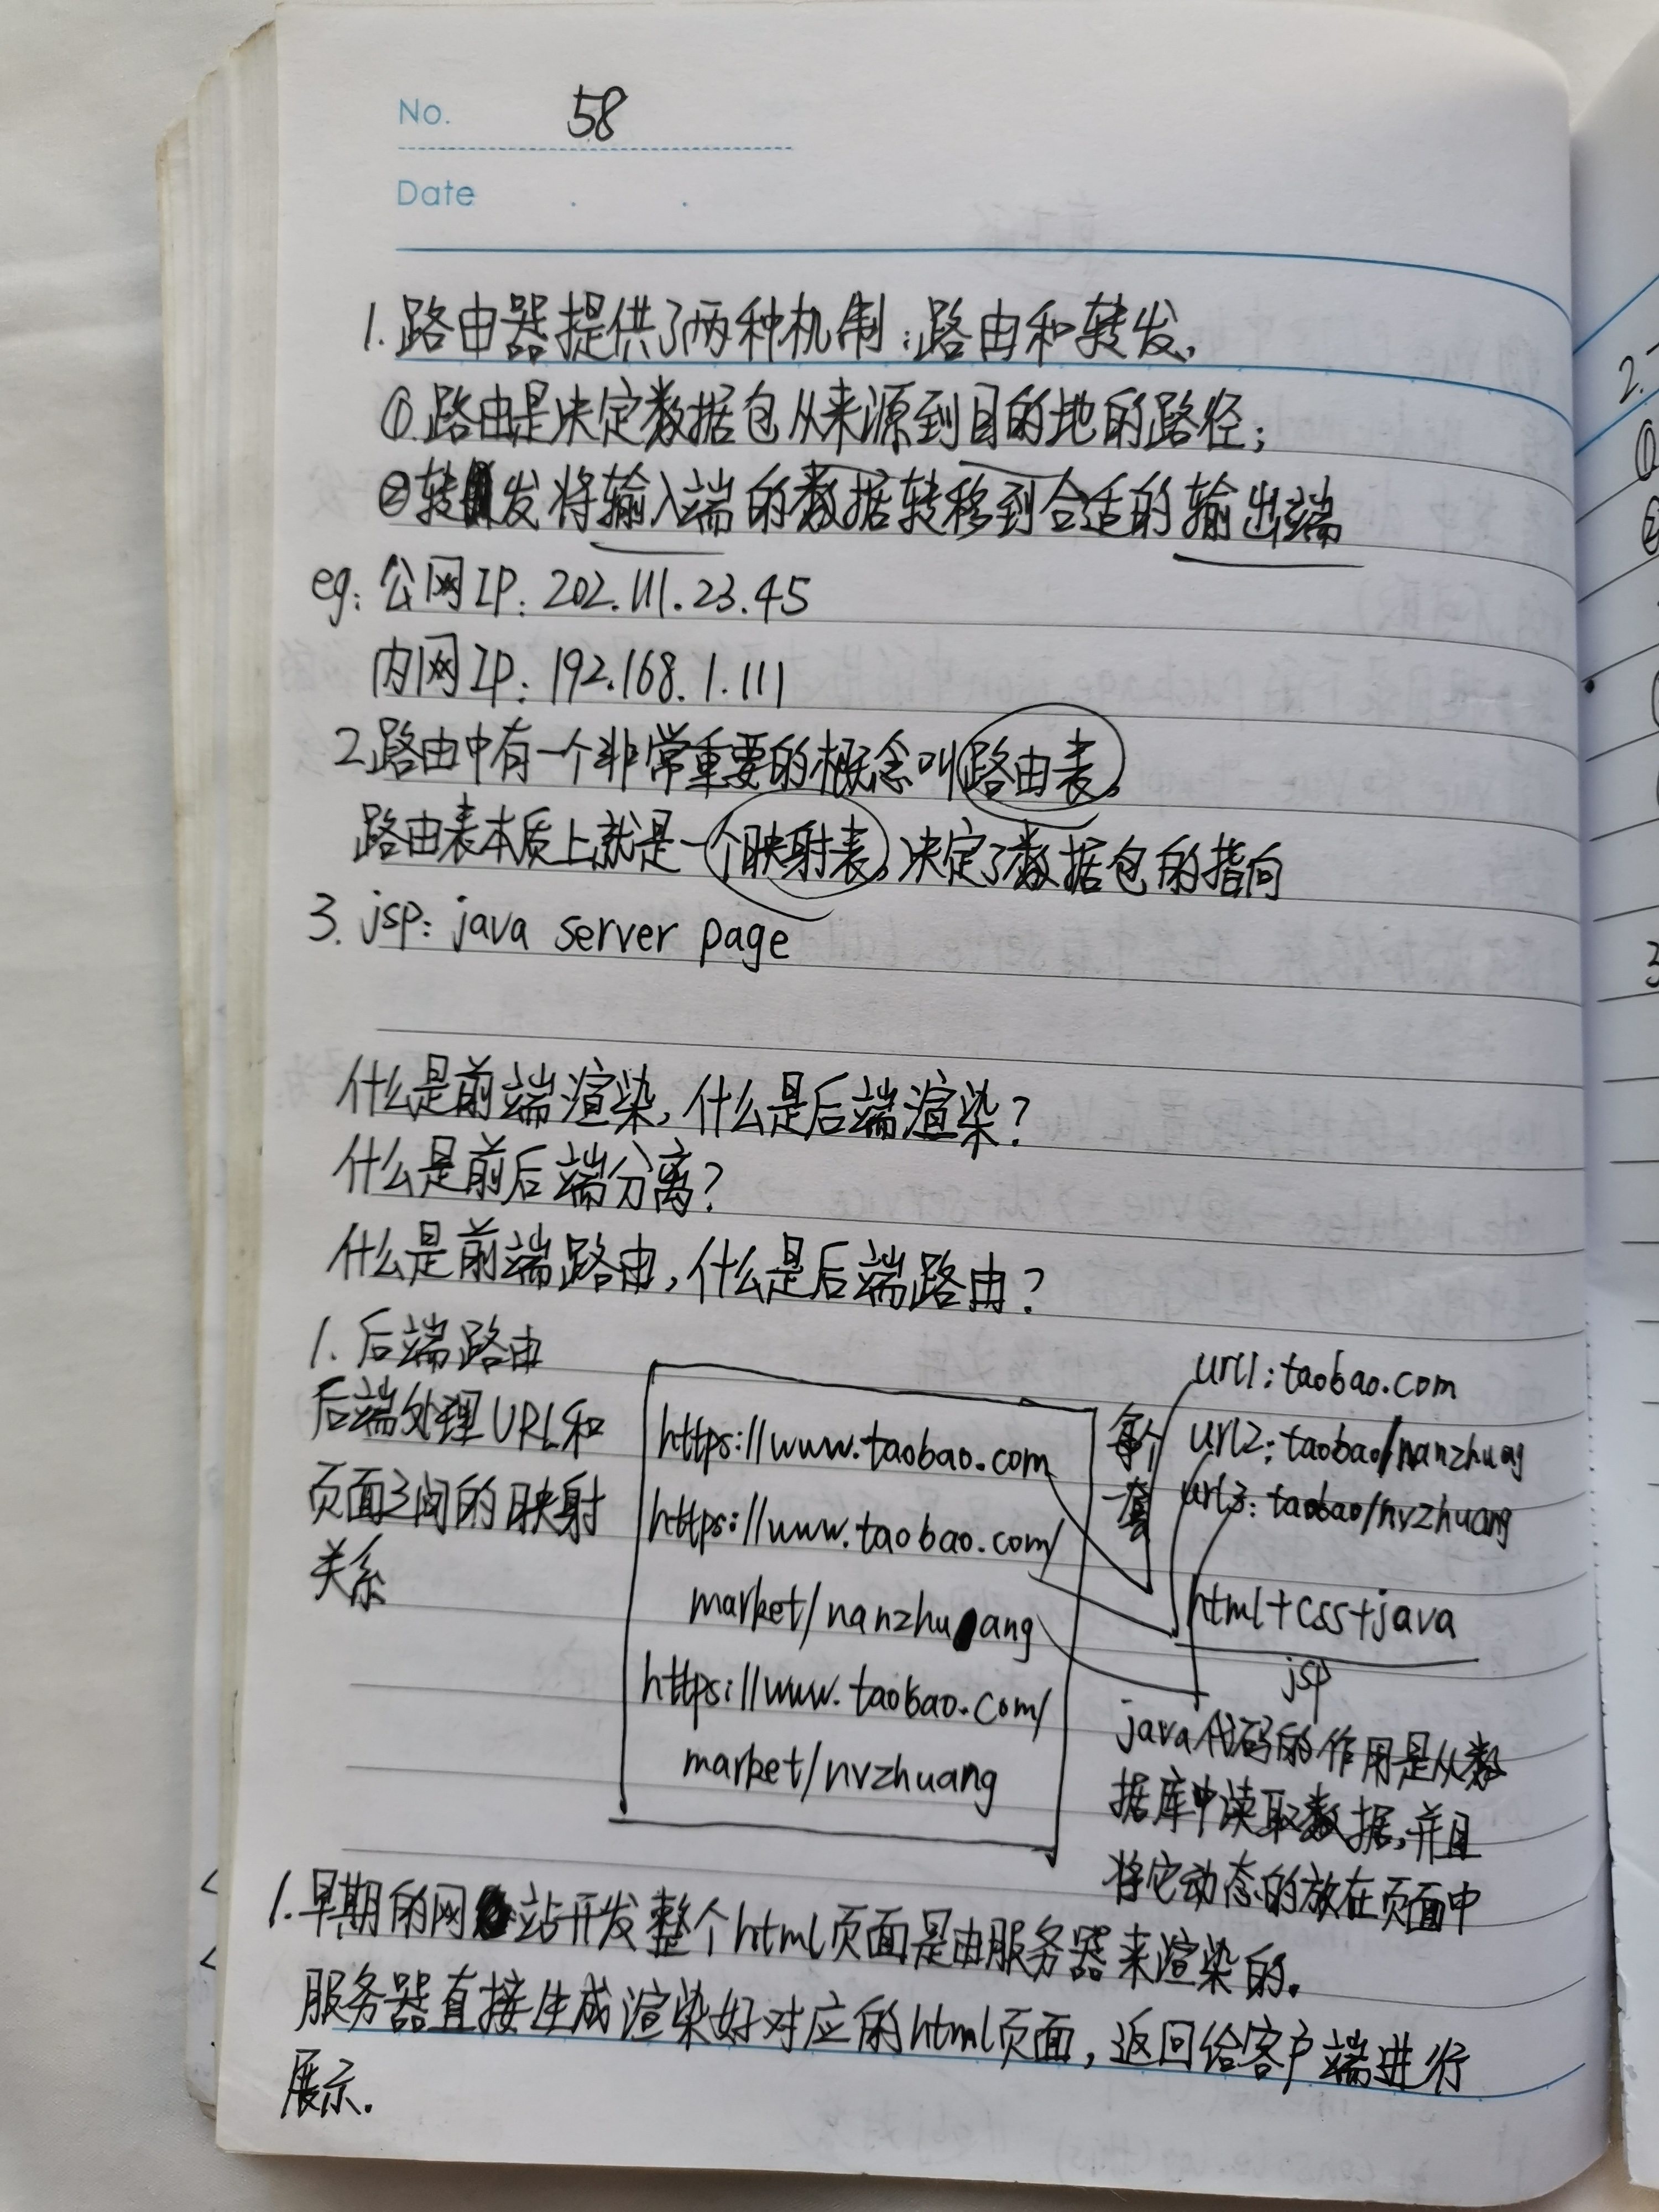 No. 58
Date
1. 路由器提供了两种机制:路由和转发,
①.路由是决定数据包从来源到目的地的路径;
②转发将输入端的数据转移到合适的输出端
eg: 公网IP: 202.111.23.45
内网IP: 192.168.1.111
2.路由中有一个非常重要的概念叫路由表,
路由表本质上就是一个映射表,决定了数据包的指向
3. jsp: java server page
什么是前端渲染,什么是后端渲染?
什么是前后端分离?
什么是前端路由,什么是后端路由?
1. 后端路由
后端处理URL和
页面之间的映射
关系
https://www.taobao.com
https://www.taobao.com/
market/nanzhuang
https://www.taobao.com/
market/nvzhuang
每个
一套
url1:taobao.com
url2:taobao/nanzhuang
url3:taobao/nvzhuang
html+css+java
jsp
java代码的作用是从数
据库中读取数据,并且
将它动态的放在页面中
1.早期的网站开发整个html页面是由服务器来渲染的.
服务器直接生成渲染好对应的html页面,返回给客户端进行
展示.
2.
①
②
3